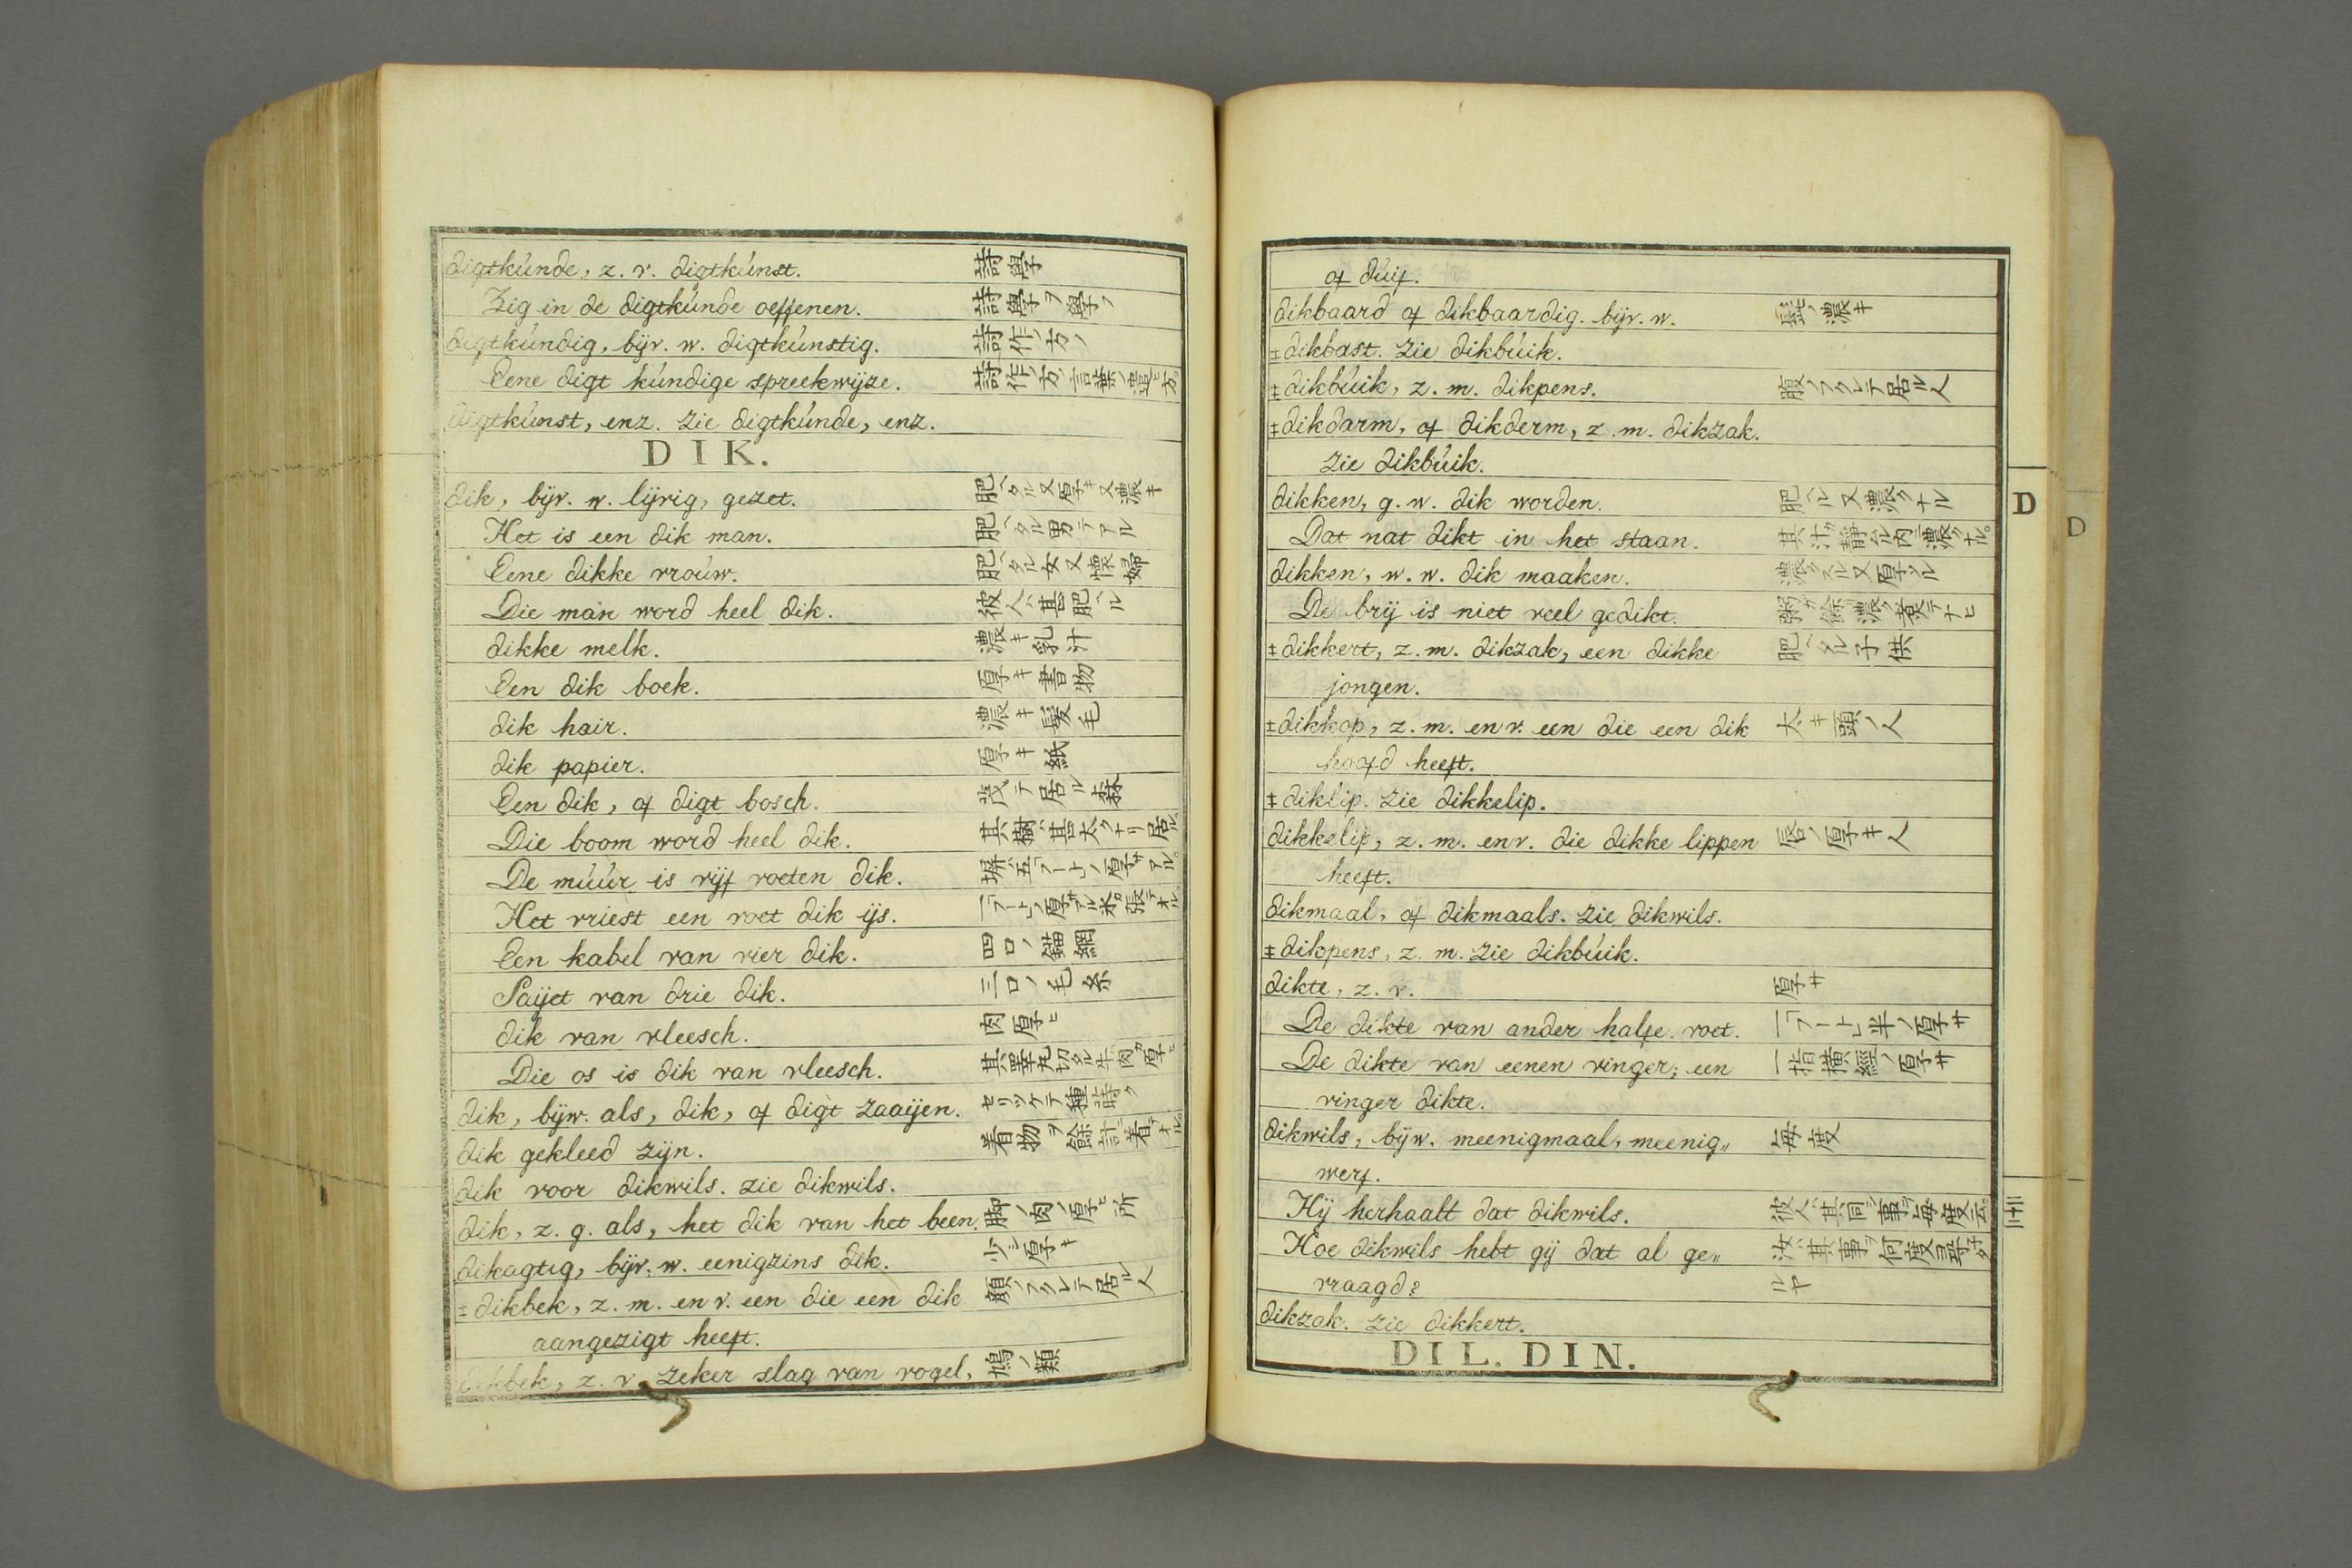 digtkúnde, z. v. digtkúnst. 詩學
Zig in de digtkúnde oeffenen. 詩學ヲ學フ
digtkúndig, bijv. w. digtkúnstig. 詩作ノ方ノ
Eene digt kúndige spreekwijze. 詩作ノ方ノ言葉ノ遣ヒ方。
digtkúnst, enz. zie digtkúnde, enz.
DIK.
dik, bijv. w. lijvig, gezet. 肥ヘタル又厚キ又濃キ
Het is een dik man. 肥ヘタル男テアル
Eene dikke vroúw. 肥ヘタル女又懐婦
Die man word heel dik. 彼人ハ甚肥ヘル
dikke melk. 濃キ乳汁
Een dik boek. 厚キ書物
dik hair. 濃キ髪毛
dik papier. 厚キ紙
Een dik, of digt bosch. 茂テ居ル森
Die boom word heel dik. 其樹ハ甚太クナリ居ル。
De múúr is vijf voeten dik. 塀ハ五「フート」ノ厚サテアル。
Het vriest een voet dik ijs. 一「フート」ノ厚サノ氷カ張テオル。
Een kabel van vier dik. 四口ノ錨綱
Saijet van drie dik. 三口ノ毛糸
dik van vleesch. 肉厚ヒ
Die os is dik van vleesch. 其睾丸切タル牛ハ肉カ厚ヒ
dik, bijw. als, dik, of digt zaaijen. セリツケテ種蒔ク
dik gekleed zijn. 着物ヲ餘計着テオル。
dik voor dikwils. zie dikwils.
dik, z. g. als, het dik van het been. 脚ノ肉ノ厚ヒ所
dikagtig, bijv. w. eenigzins dik. 少シ厚キ
‡dikbek, z. m. en v. een die een dik 顔ノフクレテ居ル人
aangezigt heeft.
dikbek, z. v. zeker slag van vogel, 鳩ノ類
of dúif.
dikbaard of dikbaardig. bijv. w. 髭ノ濃キ
‡dikbast. zie dikbúik.
‡dikbúik, z. m. dikpens. 腹ノフクレテ居ル人
‡dikdarm, of dikderm, z. m. dikzak.
zie dikbúik.
dikken, g. w. dik worden. 肥ヘル又濃クナル
D
Dat nat dikt in het staan. 其汁ハ静ル内ニ濃クナル。
dikken, w. w. dik maaken. 濃クスル又厚クスル
De brij is niet veel gedikt. 粥カ餘濃ク煮テナヒ
‡dikkert, z. m. dikzak, een dikke 肥ヘタル子供
jongen.
‡dikkop, z. m. en v. een die een dik 大キ頭ノ人
hoofd heeft.
‡diklip. zie dikkelip.
dikkelip, z. m. en v. die dikke lippen 唇ノ厚キ人
heeft.
dikmaal, of dikmaals. zie dikwils.
‡dikpens, z. m. zie dikbúik.
dikte, z. v. 厚サ
De dikte van ander halfe voet. 一「フート」半ノ厚サ
De dikte van eenen vinger; een 一指横經ノ厚サ
vinger dikte.
dikwils, bijw. meenigmaal, meenig„ 毎度
werf.
Hij herhaalt dat dikwils. 彼人ハ其同シ事ヲ毎度云。
Hoe dikwils hebt gij dat al ge„ 汝ハ其事ヲ何度尋子タ
vraagd? ルヤ
dikzak. zie dikkert.
DIL. DIN.